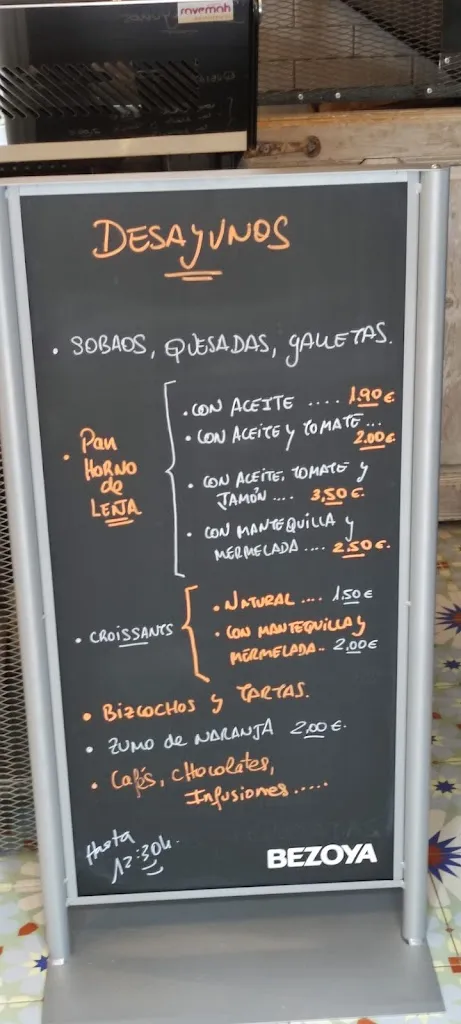 ravemah
DESAYUNOS
• SOBAOS, QUESADAS, GALLETAS.
• Pan
HORNO
de
LEÑA
• CON ACEITE .... 1.90€
• CON ACEITE y TOMATE ...
2.00€
• CON ACEITE, TOMATE y
JAMÓN .... 3,50€.
• CON MANTEQUILLA y
MERMELADA .... 2.50€.
• CROISSANTS
• NATURAL .... 1.50€
• CON MANTEQUILLA y
MERMELADA.. 2.00€
• BIZCOCHOS y TARTAS.
• ZUMO de NARANJA 2,00€.
• Cafés, chocolates,
Infusiones.....
Hasta
12:30h.
BEZOYA